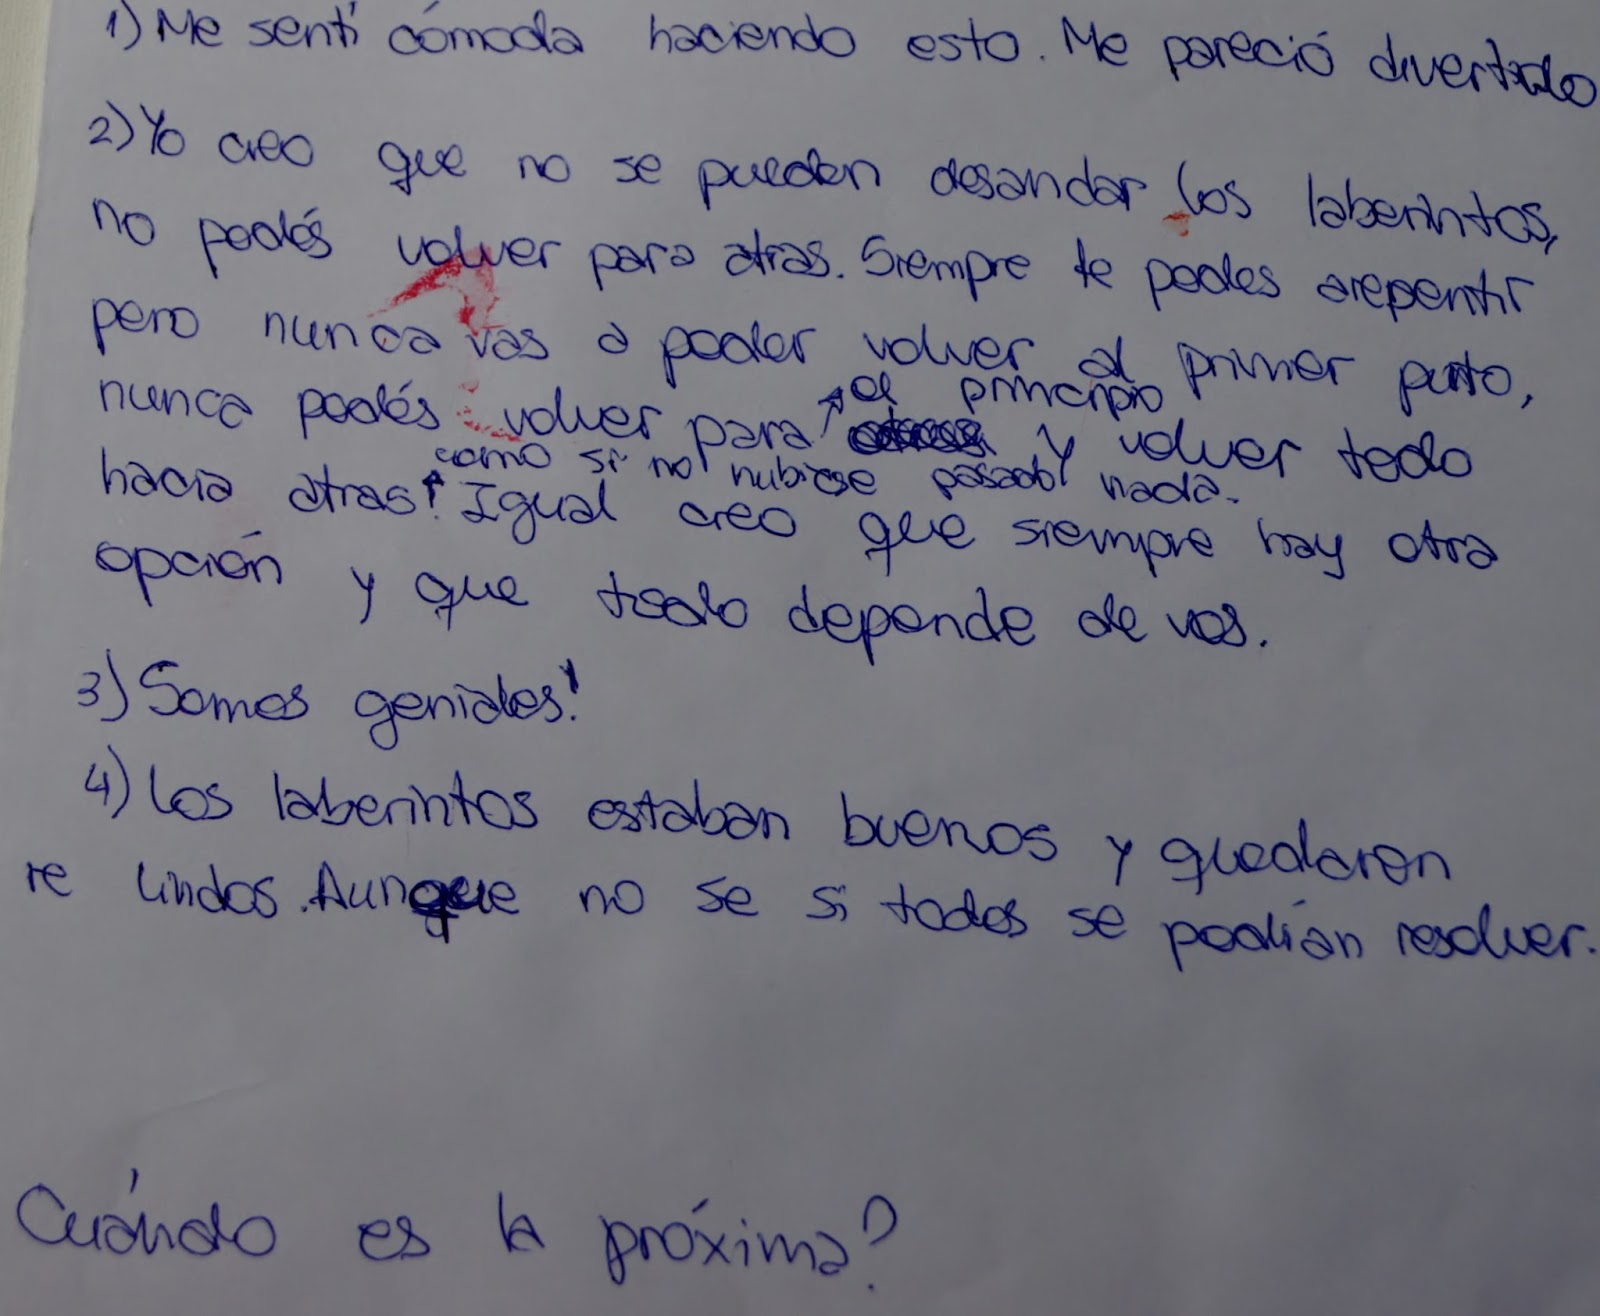 1) Me sentí cómoda haciendo esto. Me pareció divertido
2) Yo creo que no se pueden desandar los laberintos,
no podés volver para atras. Siempre te podes arepentir
pero nunca vas a poder volver al primer punto,
nunca podés volver para el principio y volver todo
hacia atras como si no hubiese pasado nada. Igual creo que siempre hay otra
opción y que todo depende de vos.
3) Somos geniales!
4) Los laberintos estaban buenos y quedaron
re lindos. Aunque no se si todos se podían resolver.
Cuándo es la próxima?